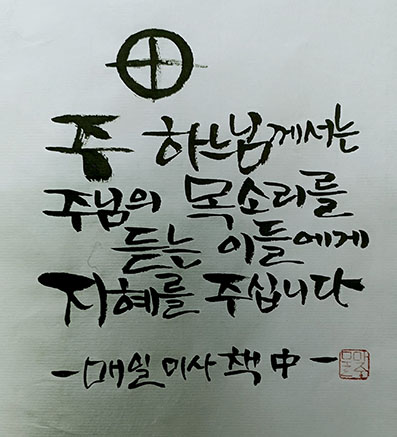 주 하느님께서는
주님의 목소리를
듣는 이들에게
지혜를 주십니다
- 매일미사 책 中 -